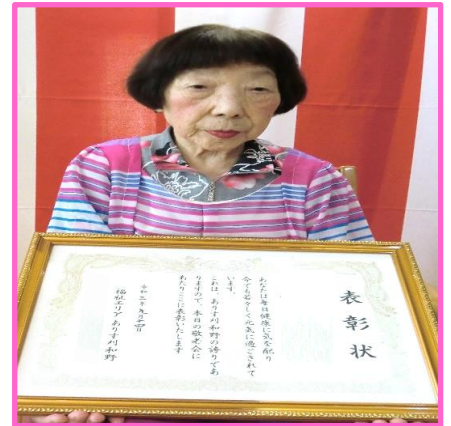 表彰状
あなたは毎日健康に気を配り
今でも若々しく元気に過ごされて
います。
これは、ありす刈和野の誇りであ
りますので、本日の敬老会に
あたりここに表彰いたします
令和三年九月
福祉エリア ありす刈和野